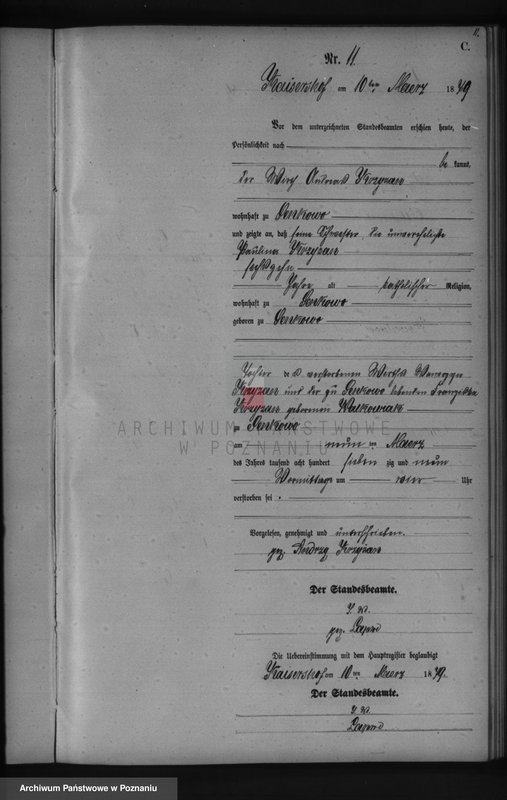 11.
C.
Nr. 11.
Kaisershof am 10ten Maerz 1879
Vor dem unterzeichneten Standesbeamten erschien heute, der
Persönlichkeit nach
be kannt,
der Wirth Andreas Krzyzan
wohnhaft zu Senkowo
und zeigte an, daß seine Schwester, die unverehelichte
Paulina Krzyzan
sechszehn
Jahre alt katholischer Religion,
wohnhaft zu Senkowo
geboren zu Senkowo
Tochter des verstorbenen Wirths
Krzyzan und der zu Senkowo lebenden Franziska
Krzyzan geborenen Walkowiak
zu Senkowo
am neun ten Maerz
des Jahres tausend acht hundert sieben zig und neun
Vormittags um vier Uhr
verstorben sei.
Vorgelesen, genehmigt und unterschrieben.
gez. Andrzy Krzyżan
Der Standesbeamte.
gez.
Die Uebereinstimmung mit dem Hauptregister beglaubigt
Kaisershof am 10ten Maerz 1879.
Der Standesbeamte.
ARCHIWUM PAŃSTWOWE
W POZNANIU
Archiwum Państwowe w Poznaniu